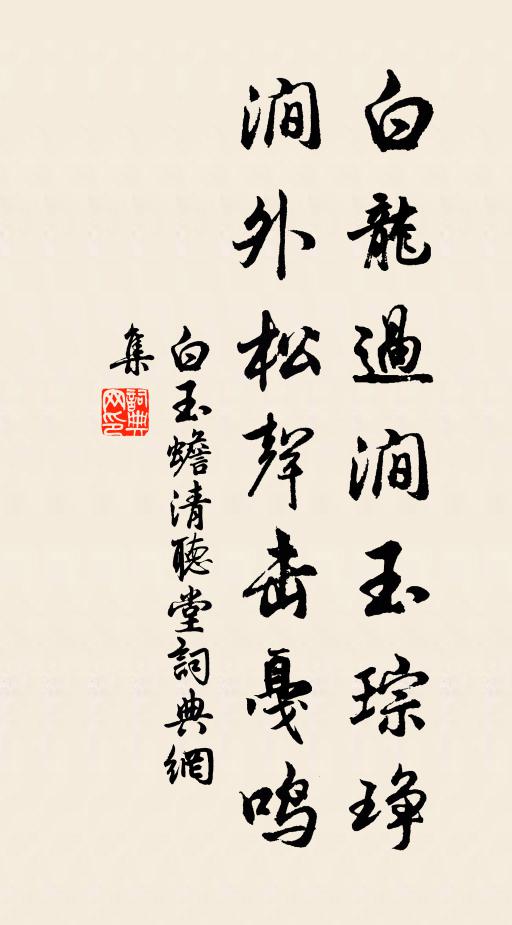 白龍過澗玉琮琤
澗外松聲击戛鳴
白玉蟾清聽堂詞典網
集
詞典
网印